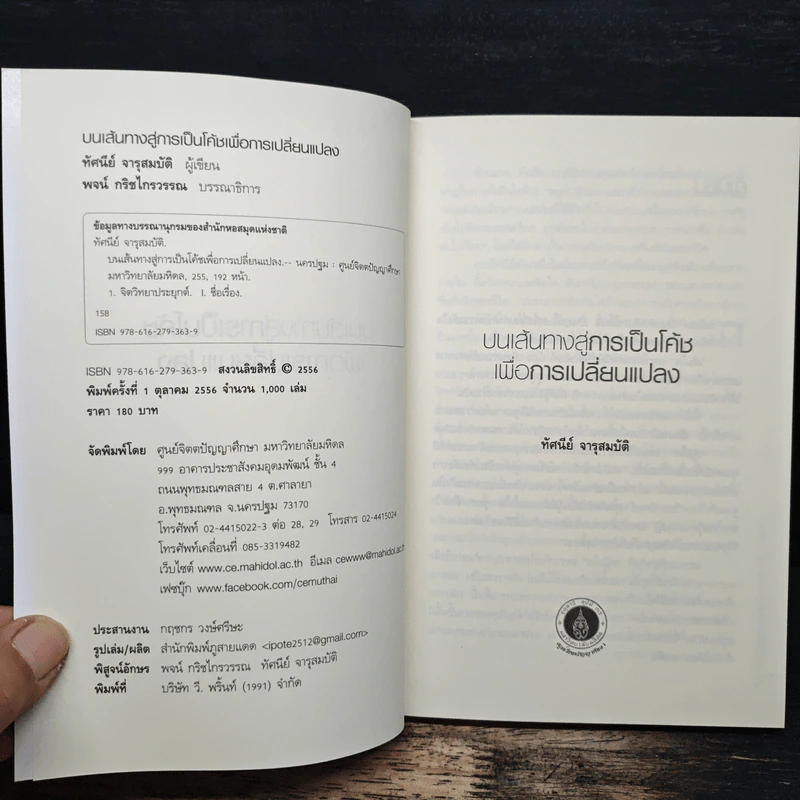 บนเส้นทางสู่การเป็นโค้ชเพื่อการเปลี่ยนแปลง
ทัศนีย์ จารุสมบัติ ผู้เขียน
พจน์ กริชไกรวรรณ บรรณาธิการ
ข้อมูลทางบรรณานุกรมของสำนักหอสมุดแห่งชาติ
ทัศนีย์ จารุสมบัติ.
บนเส้นทางสู่การเป็นโค้ชเพื่อการเปลี่ยนแปลง.-- นครปฐม : ศูนย์จิตตปัญญาศึกษา
มหาวิทยาลัยมหิดล, 255, 192 หน้า.
1. จิตวิทยาประยุกต์. I. ชื่อเรื่อง.
158
ISBN 978-616-279-363-9
ISBN 978-616-279-363-9 สงวนลิขสิทธิ์ © 2556
พิมพ์ครั้งที่ 1 ตุลาคม 2556 จำนวน 1,000 เล่ม
ราคา 180 บาท
จัดพิมพ์โดย ศูนย์จิตตปัญญาศึกษา มหาวิทยาลัยมหิดล
999 อาคารประชาสังคมอุดมพัฒน์ ชั้น 4
ถนนพุทธมณฑลสาย 4 ต.ศาลายา
อ.พุทธมณฑล จ.นครปฐม 73170
โทรศัพท์ 02-4415022-3 ต่อ 28, 29 โทรสาร 02-4415024
โทรศัพท์เคลื่อนที่ 085-3319482
เว็บไซต์ www.ce.mahidol.ac.th อีเมล cewww@mahidol.ac.th
เฟซบุ๊ก www.facebook.com/cemuthai
ประสานงาน กฤชกร วงษ์ศรีษะ
รูปเล่ม/ผลิต สำนักพิมพ์ภูสายแดด <ipote2512@gmail.com>
พิสูจน์อักษร พจน์ กริชไกรวรรณ ทัศนีย์ จารุสมบัติ
พิมพ์ที่ บริษัท วี. พริ้นท์ (1991) จำกัด
บนเส้นทางสู่การเป็นโค้ช
เพื่อการเปลี่ยนแปลง
ทัศนีย์ จารุสมบัติ